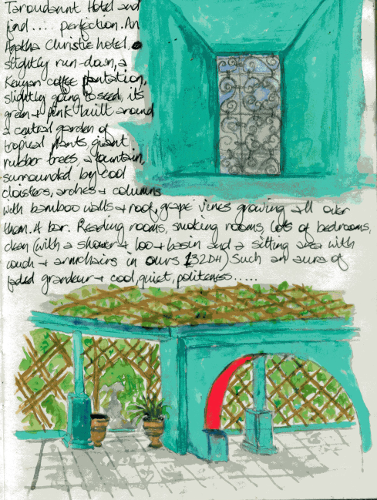 Taroudannt Hotel and
find.... perfection. An
Agatha Christie hotel,
slightly run-down, a
Kenyan coffee plantation,
slightly going to seed, its
green & pink, built around
a central garden of
tropical plants, giant
rubber trees, a fountain,
surrounded by cool
cloisters, arches & columns
with bamboo walls & roof, grape vines growing all over
them. A bar. Reading rooms, smoking rooms, lots of bedrooms,
clean (with a shower & loo & basin and a sitting area with
couch & armchairs in ours 132DH) Such an aura of
faded grandeur & cool, quiet, politeness.....